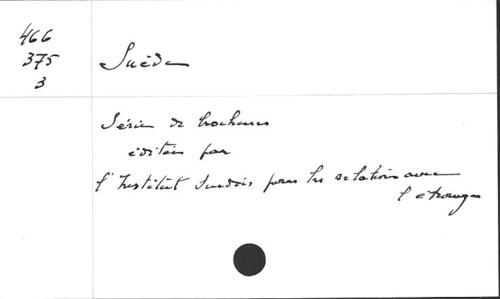 466
375
3
Suède
Série de brochures
éditées par
l'Institut Suedois pour les relations avec
l'etranger